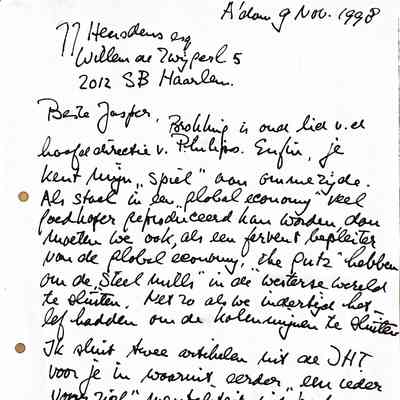 A'dam 9 Nov. 1998
JJ Heusdens esq
Willem de Zwijgerl 5
2012 SB Haarlem.
Beste Jasper, Brokking is oud lid v.d
hoofddirectie v. Philips. Enfin, je
kent mijn "spiel" aan ommezijde.
Als staal in een "global economy" veel
goedkoper geproduceerd kan worden dan
moeten we ook, als een fervent bepleiter
van de global economy, "the guts" hebben
om de "steel mills" in de westerse wereld
te sluiten. Net zo als we indertijd het
lef hadden om de kolenmijnen te sluiten
Ik sluit twee artikelen uit de IHT
voor je in waaruit eerder "een ieder
voor zich" mentaliteit